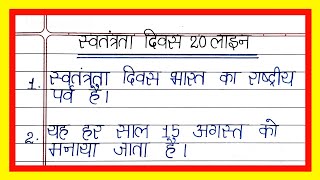 स्वतंत्रता दिवस 20 लाइन
1. स्वतंत्रता दिवस भारत का राष्ट्रीय
पर्व है।
2. यह हर साल 15 अगस्त को
मनाया जाता है।